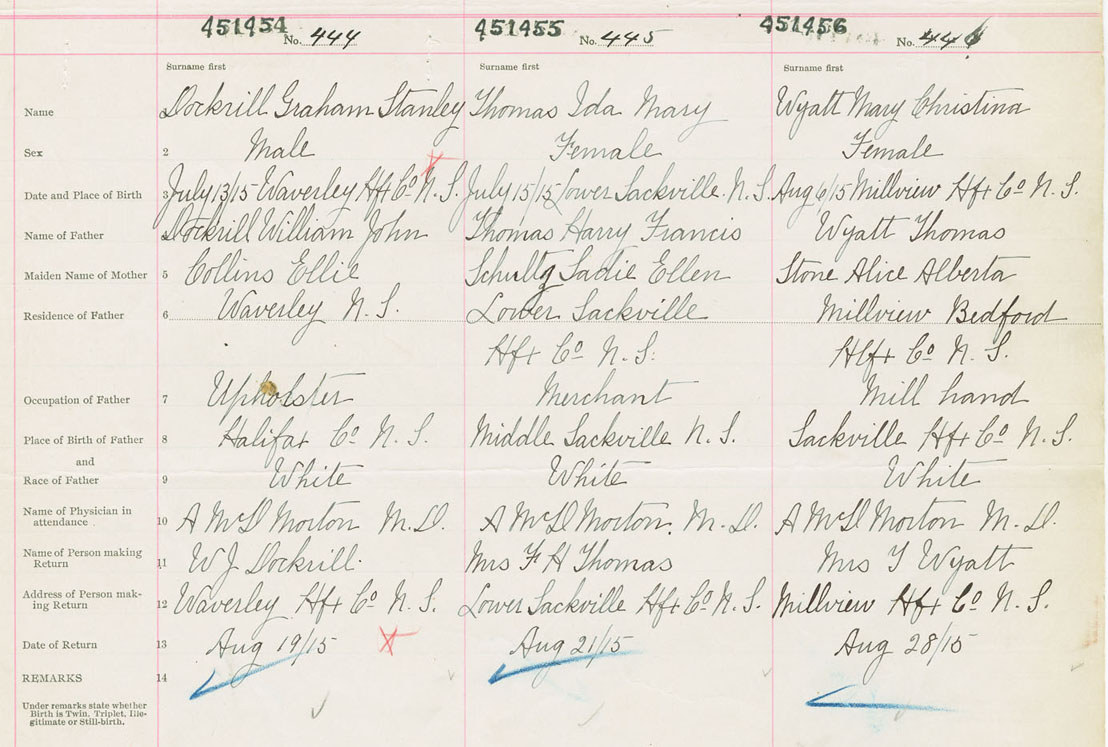 451454 No. 444 451455 No. 445 451456 No. 446
Surname first Surname first Surname first
Name Dockrill Graham Stanley Thomas Ida Mary Wyatt Mary Christina
Sex 2 Male Female Female
Date and Place of Birth 3 July 13/15 Waverley Hfx Co N.S. July 15/15 Lower Sackville N.S. Aug 6/15 Millview Hfx Co N.S.
Name of Father Dockrill William John Thomas Harry Francis Wyatt Thomas
Maiden Name of Mother 5 Collins Ellie Schultz Sadie Ellen Stone Alice Alberta
Residence of Father 6 Waverley N.S. Lower Sackville Millview Bedford
Hfx Co N.S. Hfx Co N.S.
Occupation of Father 7 Upholster Merchant Mill hand
Place of Birth of Father 8 Halifax Co N.S. Middle Sackville N.S. Sackville Hfx Co N.S.
and
Race of Father 9 White White White
Name of Physician in
attendance . 10 A McD Morton M.D. A McD Morton. M.D. A McD Morton M.D.
Name of Person making
Return 11 W J Dockrill. Mrs F H Thomas Mrs T Wyatt
Address of Person mak-
ing Return 12 Waverley Hfx Co N.S. Lower Sackville Hfx Co N.S. Millview Hfx Co N.S.
Date of Return 13 Aug 19/15 Aug 21/15 Aug 28/15
REMARKS 14
Under remarks state whether
Birth is Twin, Triplet, Ille-
gitimate or Still-birth.